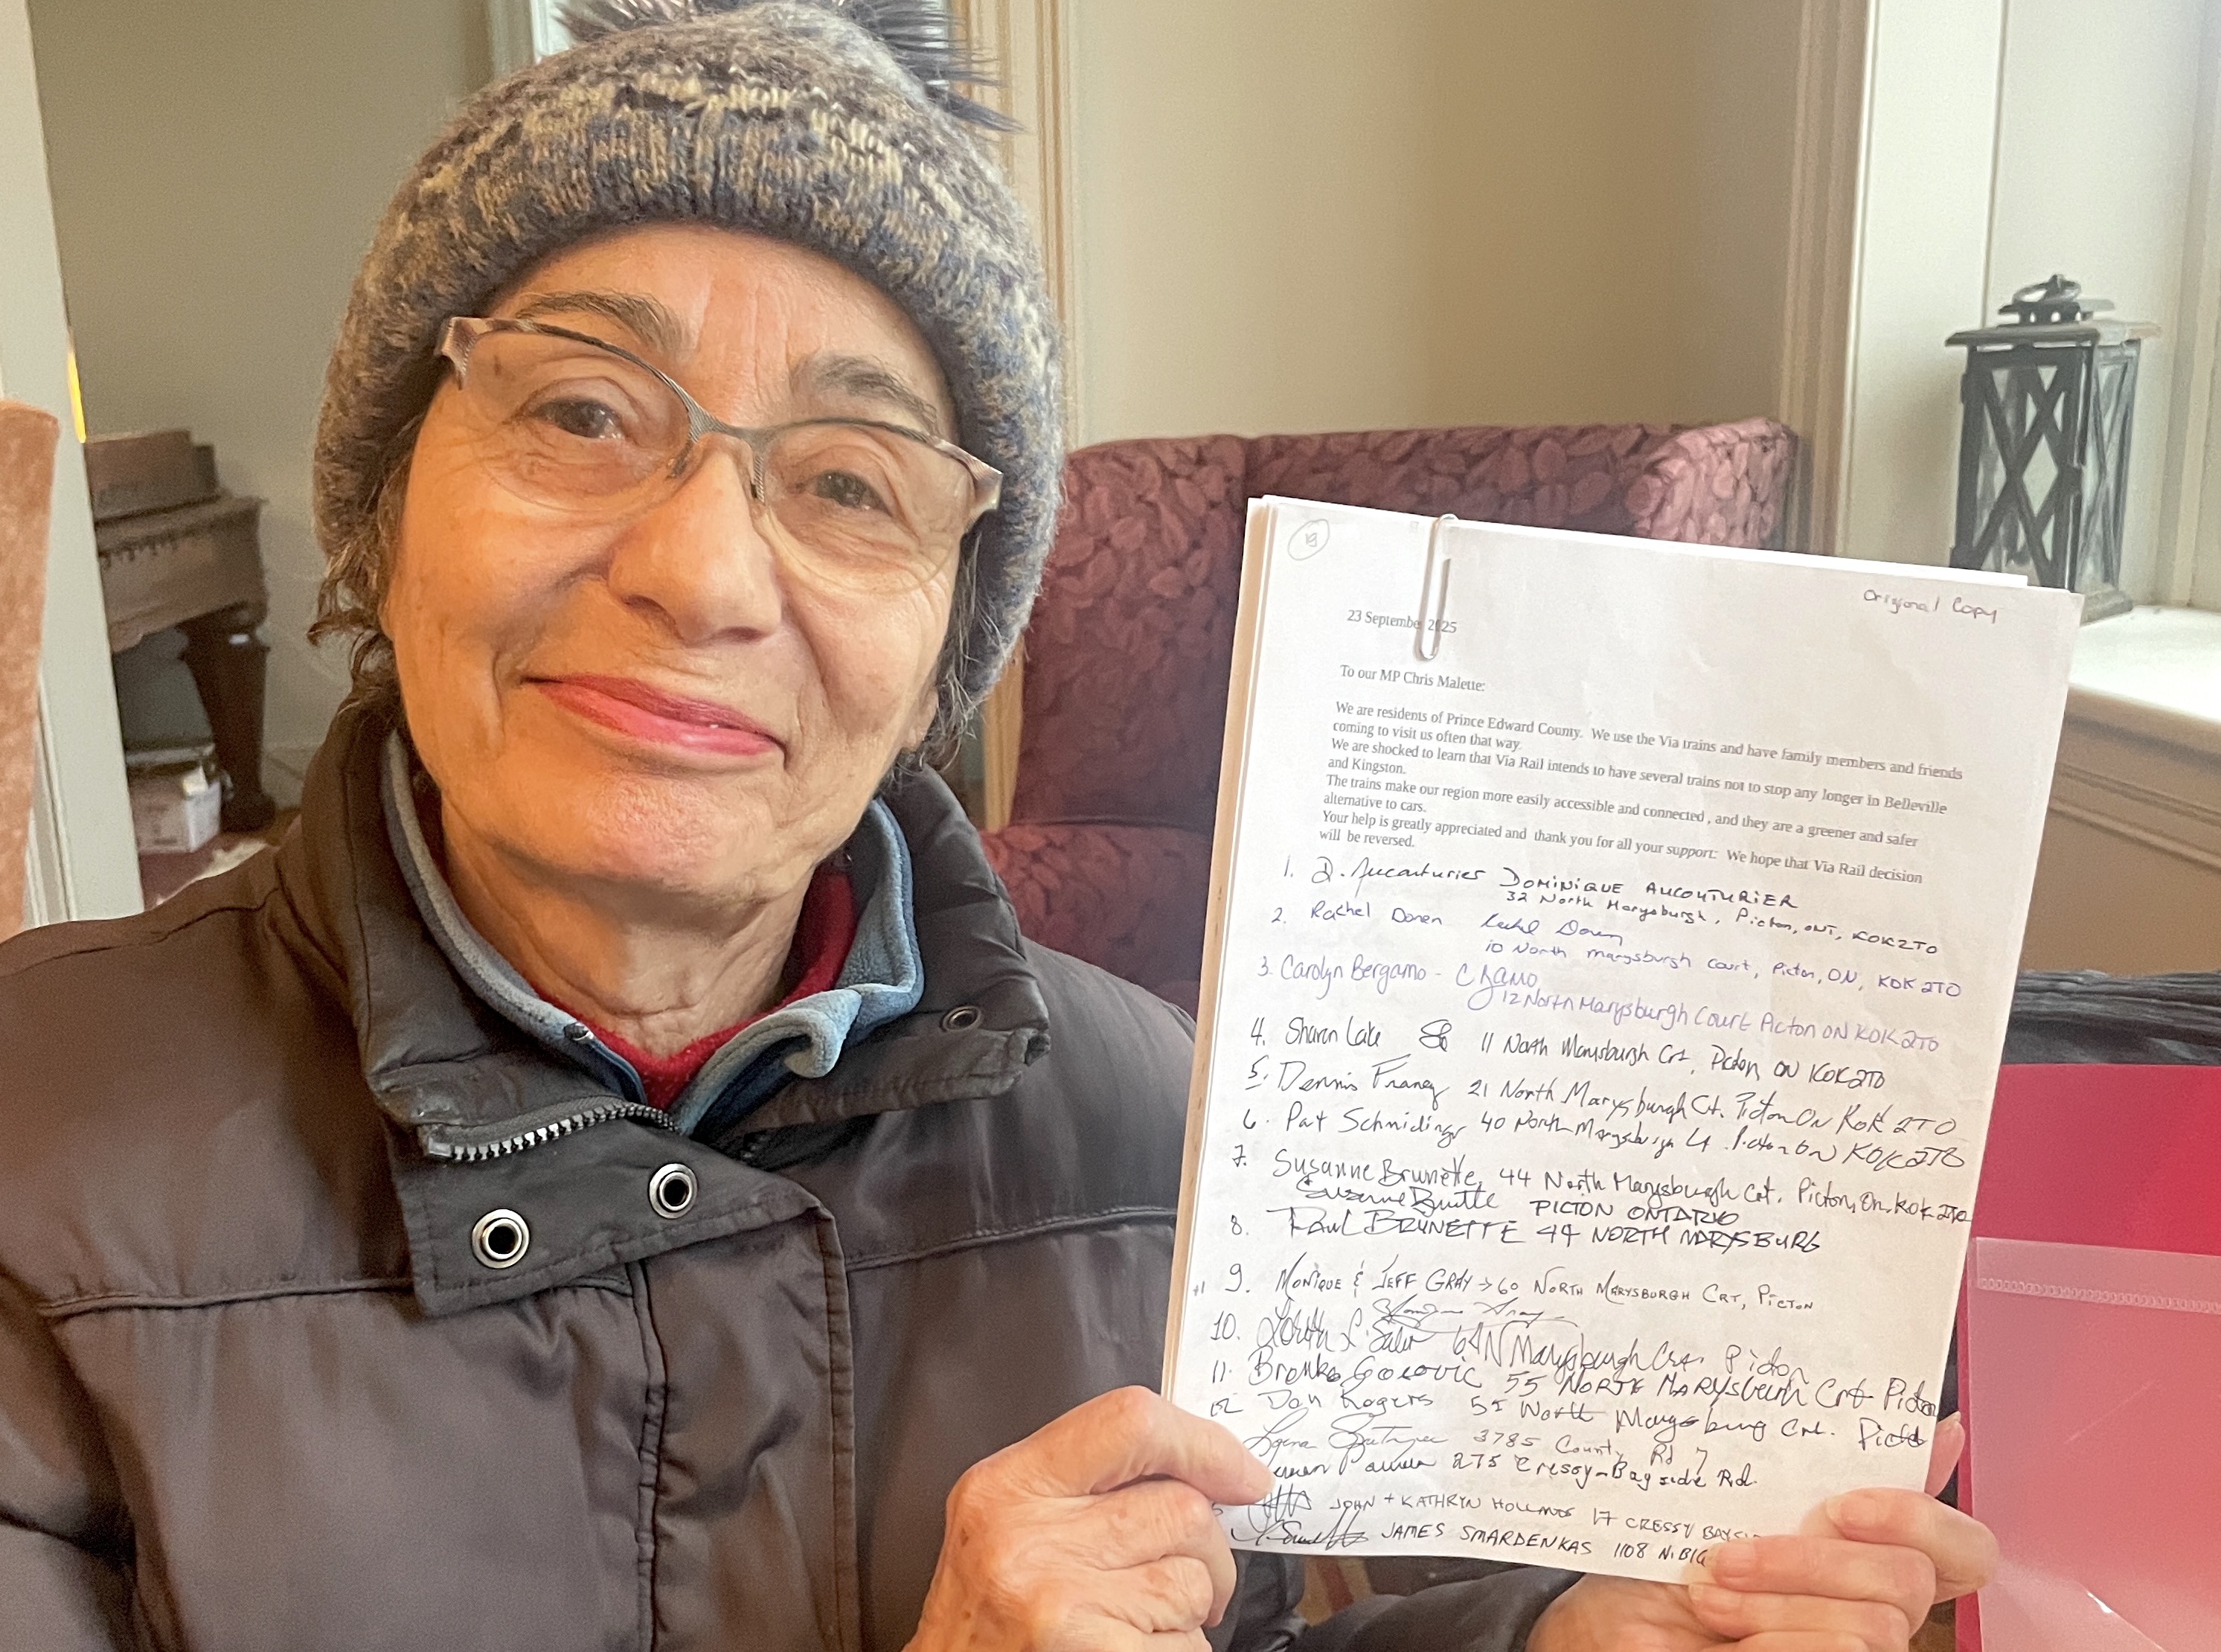 Original Copy
23 September 2025
To our MP Chris Malette:
We are residents of Prince Edward County. We use the Via trains and have family members and friends
coming to visit us often that way.
We are shocked to learn that Via Rail intends to have several trains not to stop any longer in Belleville
and Kingston.
The trains make our region more easily accessible and connected , and they are a greener and safer
alternative to cars.
Your help is greatly appreciated and thank you for all your support: We hope that Via Rail decision
will be reversed.
1. D. Aucouturier DOMINIQUE AUCOUTURIER
32 North Marysburgh, Picton, ONT, K0K2T0
2. Rachel Doren
10 North marysburgh court, Picton, ON, K0K 2T0
3. Carolyn Bergamo -
12 North Marysburgh Court Picton ON K0K 2T0
4. Sharon Lake 11 North Marysburgh Crt, Picton, ON K0K2T0
5. Dennis Franey 21 North Marysburgh Ct. Picton ON K0K 2T0
6. Pat 40 North Marysburgh Ct. Picton ON K0K2T0
7. Susanne Brunette, 44 North Marysburgh Crt. Picton, On. K0K 2T0
Susanne Brunette PICTON ONTARIO
8. PAUL BRUNETTE 44 NORTH MARYSBURG
+1 9. MONIQUE & JEFF GRAY → 60 NORTH MARYSBURGH CRT, PICTON
10. 64 N Marysburgh Crt. Picton
11. 55 NORTH MARYSBURH Crt Picton
12 Don Rogers 51 North Marysburg Crt. Picton
3785 County Rd 7
275 Cressy-Bayside Rd.
JOHN + KATHRYN 17 CRESSY
JAMES SMARDENKAS 1108 N. BIG